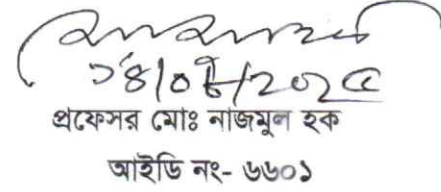 ১৪/০৮/২০২৫
প্রফেসর মোঃ নাজমুল হক
আইডি নং- ৬৬০১